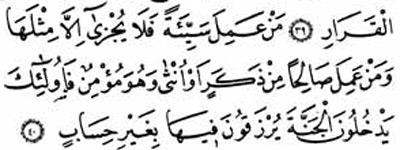 الْقَرَارِ ﴿٣٩﴾ مَنْ عَمِلَ سَيِّئَةً فَلَا يُجْزٰٓى اِلَّا مِثْلَهَا
وَمَنْ عَمِلَ صَالِحًا مِنْ ذَكَرٍ اَوْ اُنْثٰى وَهُوَ مُؤْمِنٌ فَاُو۬لٰٓئِكَ
يَدْخُلُونَ الْجَنَّةَ يُرْزَقُونَ ف۪يهَا بِغَيْرِ حِسَابٍ ﴿٤٠﴾